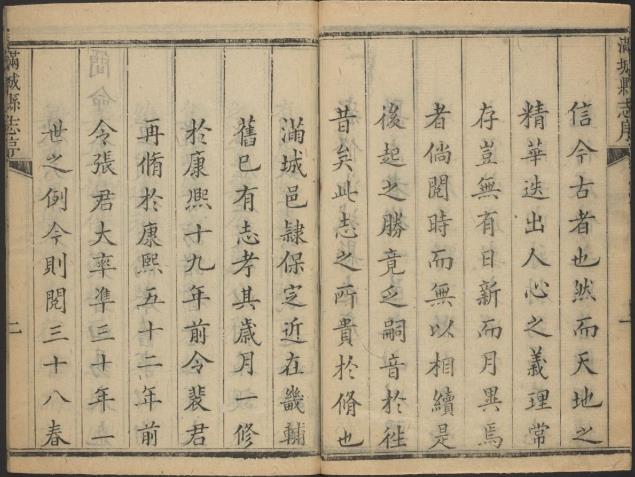 滿城縣志序
信今古者也然而天地之
精華迭出人心之義理常
存豈無有日新而月異焉
者倘閱時而無以相續是
後起之勝竟乏嗣音於徃
昔矣此志之所貴於脩也
滿城邑隸保定近在畿輔
舊已有志考其歲月一修
於康熈十九年前令裴君
再脩於康熙五十二年前
令張君大率準三十年一
世之例今則閱三十八春
滿城縣志序
二